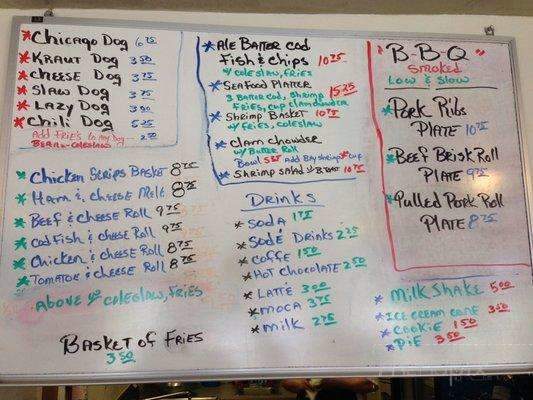 Chicago Dog 6 75
Kraut Dog 3 50
Cheese Dog 3 75
Slaw Dog 3 75
Lazy Dog 3 00
Chili Dog 5 25
Add Fries to Any Dog 2 00
Chicken Strips Basket 8 75
Ham & Cheese Melt 8 75
Beef & Cheese Roll 9 75
Cod Fish & Cheese Roll 9 75
Chicken & Cheese Roll 8 75
Tomatoe & Cheese Roll 8 75
Above w/ Coleslaw, Fries
Basket of Fries
3 50
Ale Batter Cod
Fish & Chips 10 25
w/ Coleslaw, Fries
Seafood Platter 15 25
3 Batter Cod, Shrimp
Fries, Cup Clamchowder
Shrimp Basket 10 75
w/ Fries, Coleslaw
Clam Chowder
w/ Butter Roll
Bowl 5 25 Add Bay Shrimp Cup
Shrimp Salad w/ Toast 10 75
Drinks
Soda 1 75
Sode Drinks 2 25
Coffe 1 50
Hot Chocolate 2 50
Latte 3 00
Moca 3 75
Milk 2 75
"B-B-Q"
Smoked
Low & Slow
Pork Ribs
Plate 10 75
Beef Brisk Roll
Plate 9 75
Pulled Pork Roll
Plate 8 75
Milk Shake 5 00
Ice Cream Cone 3 50
Cookie 1 50
Pie 3 50